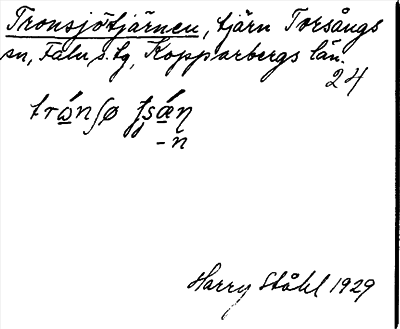 Tronsjötjärnen, tjärn Torsångs
sn, Falu s. tg, Kopparbergs län.
24
-n
Harry Ståhl 1929